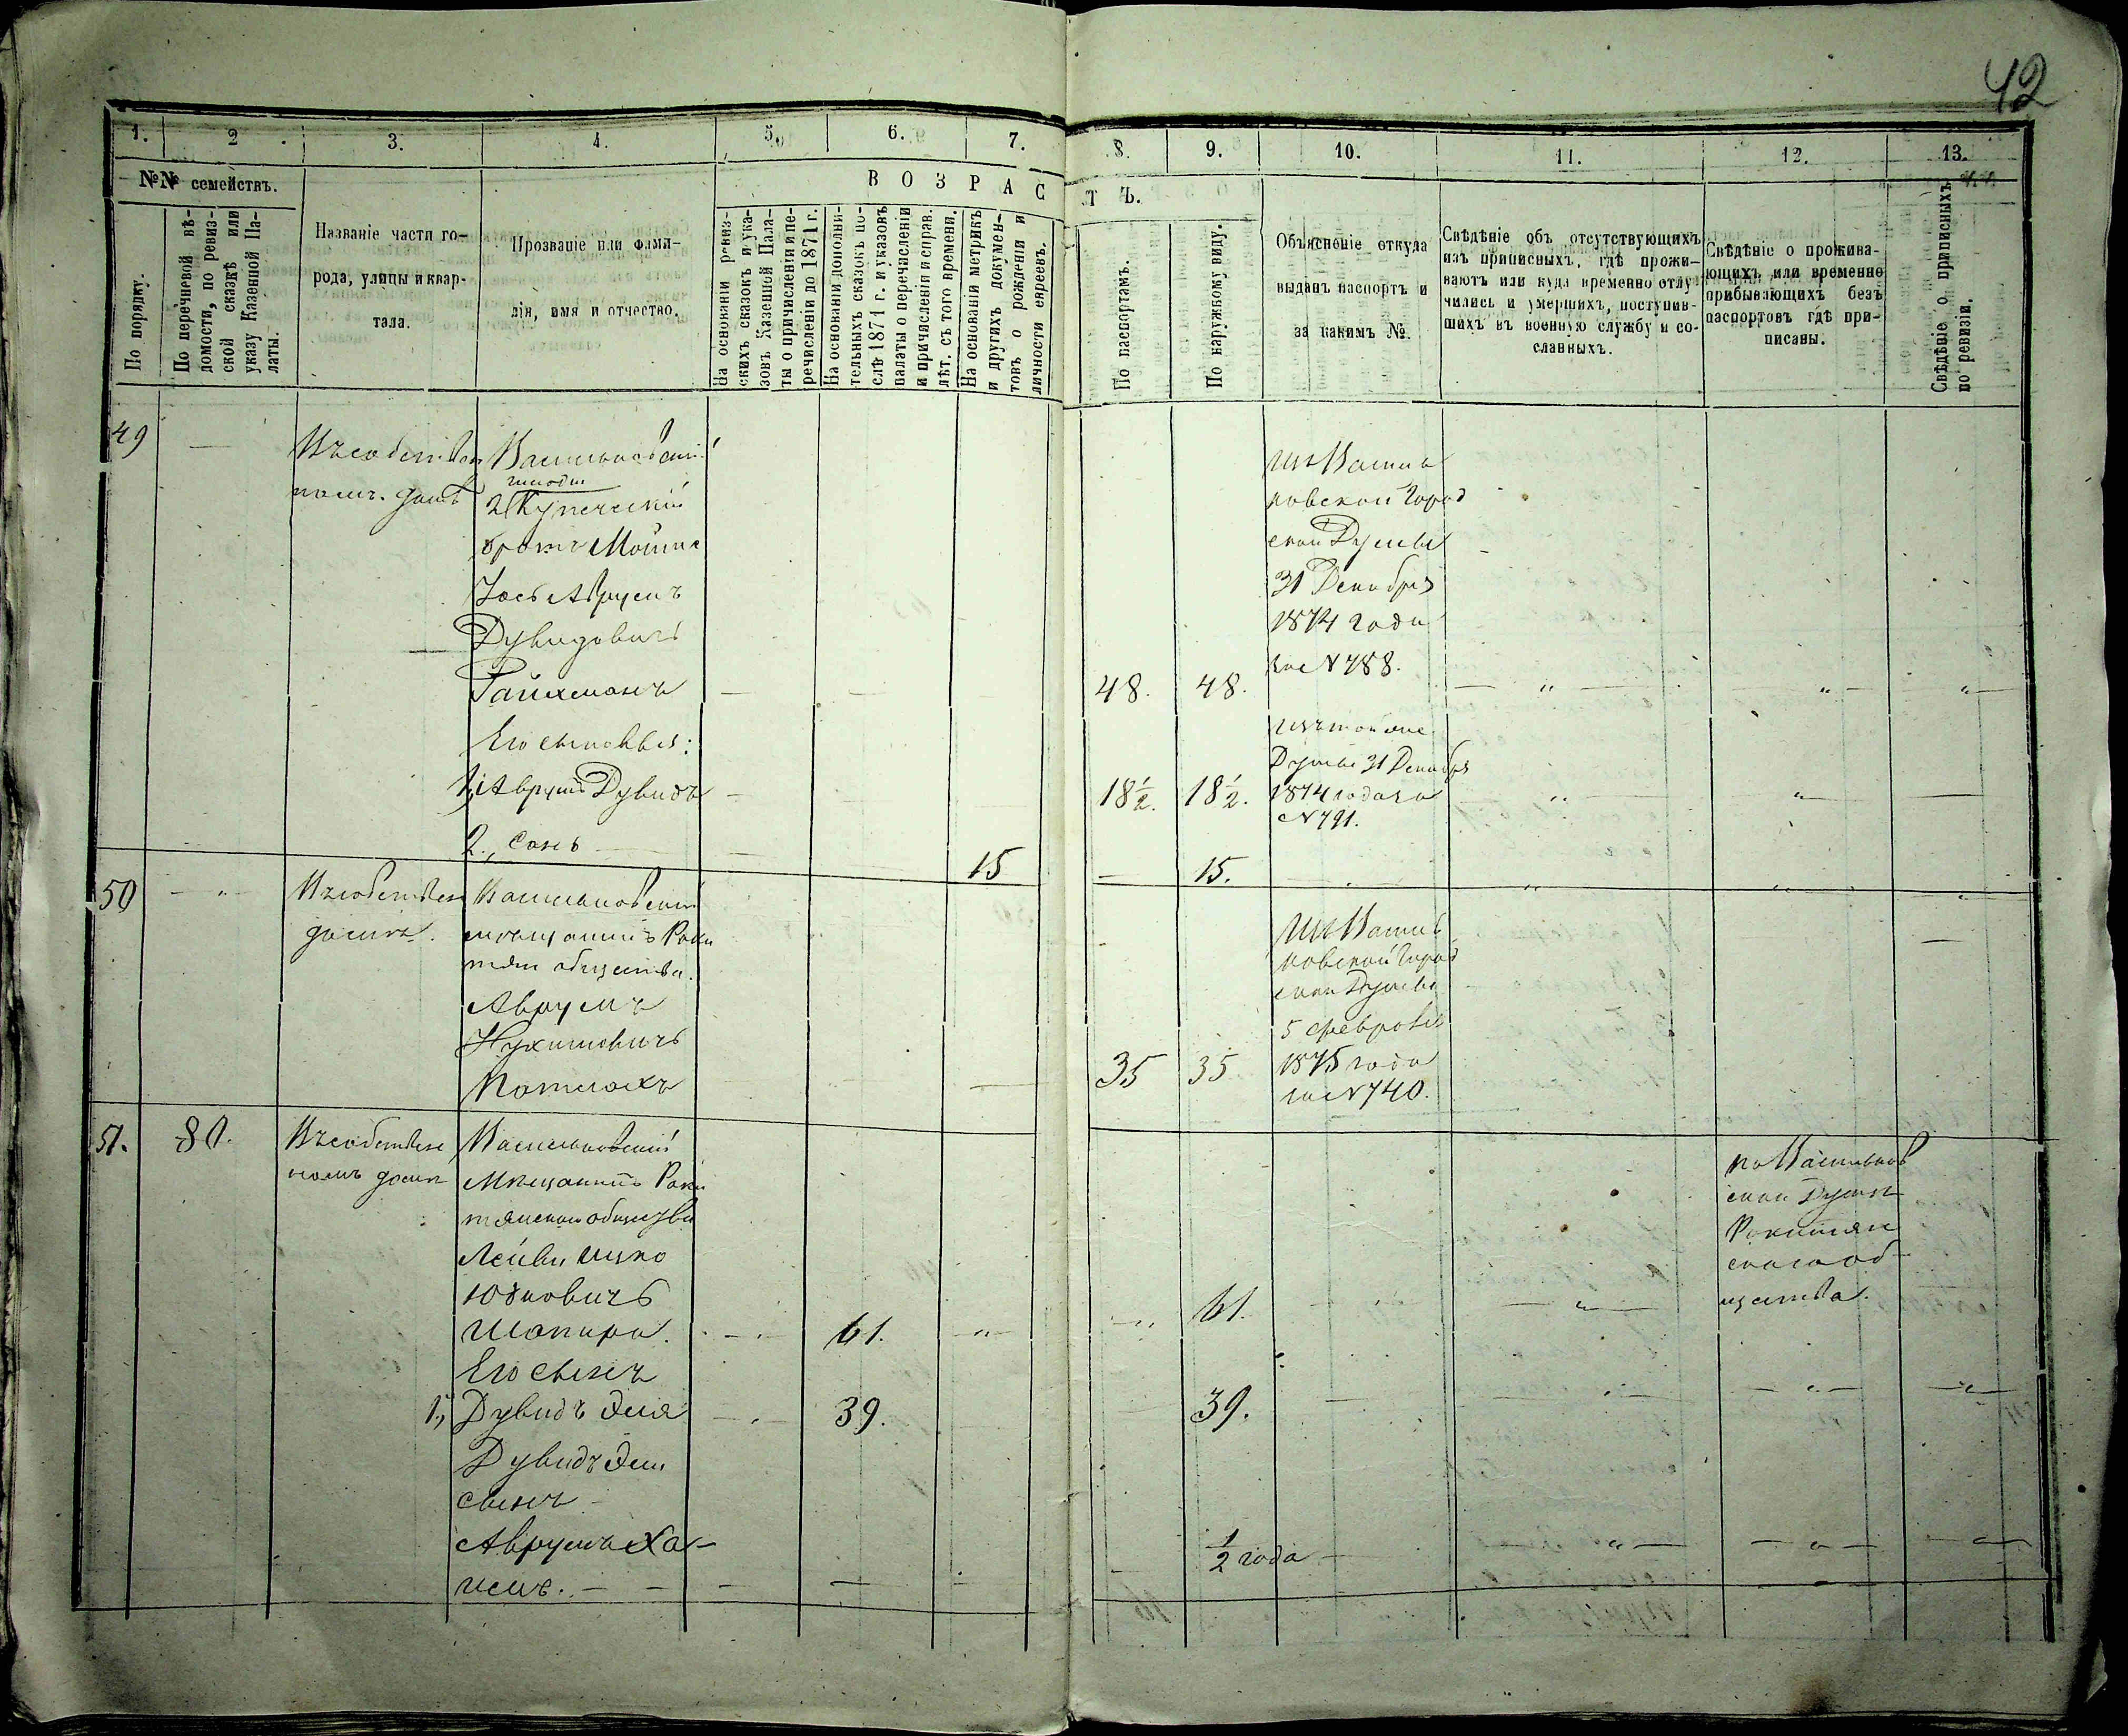 42
1. 2 3. 4. 5. 6. 7. 8. 9. 10. 11. 12. 13.
№№ семействъ.
По порядку.
По перечневой вѣ-
домости, по ревиз-
ской сказкѣ или
указу Казенной Па-
латы.
Названіе части го-
рода, улицы и квар-
тала.
Прозваніе или фами-
лія, имя и отчество.
ВОЗРАСТЪ.
На основаніи ревиз-
скихъ сказокъ и ука-
зовъ Казенной Пала-
ты о причисленіи и пе-
речисленіи до 1871 г.
На основаніи дополни-
тельныхъ сказокъ по-
слѣ 1871 г. и указовъ
палаты о перечисленіи
и причисленіи и справ.
лѣт. съ того времени.
На основаніи метрикъ
и другихъ докумен-
товъ о рожденіи и
личности евреевъ.
По паспортамъ.
По наружному виду.
Объясненіе откуда
выданъ паспортъ и
за какимъ №.
Свѣдѣніе объ отсутствующихъ
изъ приписныхъ, гдѣ прожи-
ваютъ или куда временно отлу-
чились и умершихъ, поступив-
шихъ въ военную службу и со-
сланныхъ.
Свѣдѣніе о прожива-
ющихъ или временно
прибывающихъ безъ
паспортовъ гдѣ при-
писаны.
Свѣдѣніе о приписныхъ
по ревизіи.
49
Въ собствен
ном. домѣ
Васильковскій
2 Купеческій
братъ Мошко
Іось Аврумъ
Дувидовичъ
Райхманъ
48. 48.
Изъ Василь
ковской Город
ской Думы
31 Декабря
1874 года
за № 788.
Его сыновья:
1, Аврумъ Дувидъ
18½. 18½.
изъ той же
Думы 31 Декабря
1874 года за
№ 791.
2., Сань
15
15.
50
Въ собствен
домѣ.
Васильковскій
мѣщанинъ Раки
тян общества.
Аврумъ
Нухимовичъ
35 35
Изъ Василь
ковской Город
ской Думы
5 февраля
1875 года
за № 740.
51. 80.
Въ собствен
номъ домѣ
Васильковскій
Мѣщанинъ Раки
тянскаго общества
Лейви Ицко
Юдковичъ
Шапиро.
61.
61.
по Васильков
ской Думѣ
Ракитян
скаго об
щества.
Его сынъ
1, Дувидъ Эля
39.
39.
Дувидъ Эли
сынъ
Аврумъ Ха-
имъ.
½ года